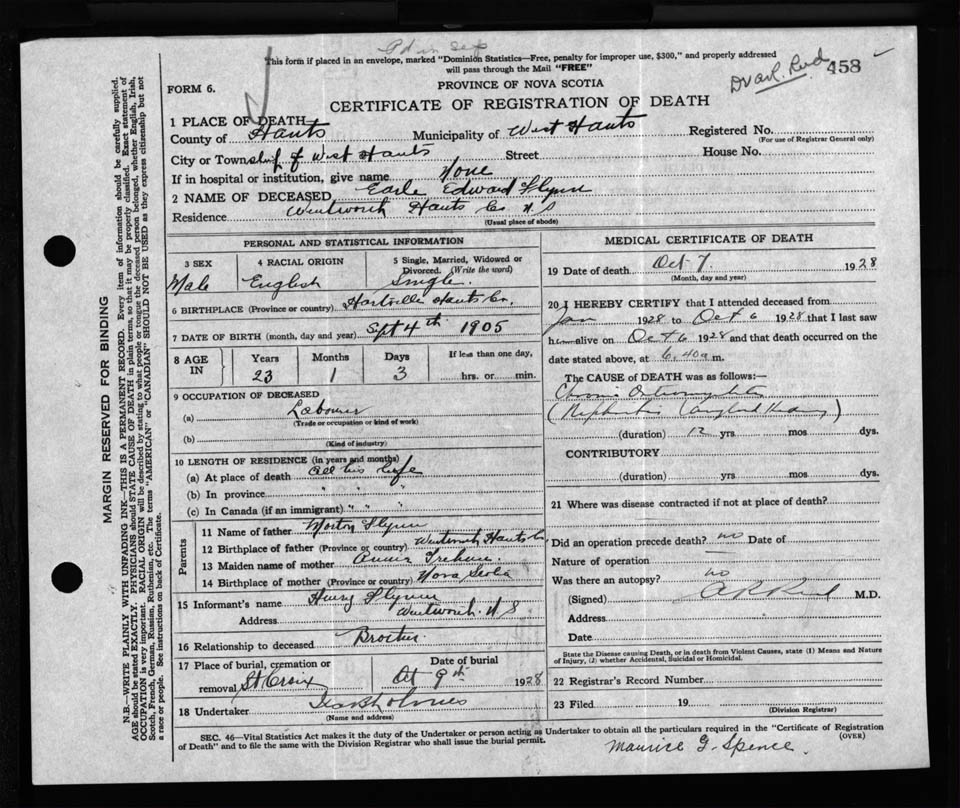 Pd in Sep
This form if placed in an envelope, marked "Dominion Statistics—Free, penalty for improper use, $300," and properly addressed
will pass through the Mail "FREE"
458
FORM 6.
PROVINCE OF NOVA SCOTIA
CERTIFICATE OF REGISTRATION OF DEATH
1 PLACE OF DEATH
County of Hants Municipality of West Hants Registered No.
(For use of Registrar General only)
City or Township of West Hants Street House No.
If in hospital or institution, give name None
2 NAME OF DECEASED Earle Edward Flynn
Residence Wentworth Hants Co N S
(Usual place of abode)
PERSONAL AND STATISTICAL INFORMATION
3 SEX 4 RACIAL ORIGIN 5 Single, Married, Widowed or
Divorced. (Write the word)
Male English Single
6 BIRTHPLACE (Province or country) Hartville Hants Co.
7 DATE OF BIRTH (month, day and year) Sept 4th 1905
8 AGE IN Years Months Days If less than one day,
23 1 3 hrs. or min.
9 OCCUPATION OF DECEASED
(a) Labourer
(Trade or occupation or kind of work)
(b)
(Kind of industry)
10 LENGTH OF RESIDENCE (in years and months)
(a) At place of death all his life
(b) In province " " "
(c) In Canada (if an immigrant) " " "
Parents
11 Name of father Flynn
12 Birthplace of father (Province or country) Wentworth Hants Co
13 Maiden name of mother Annie
14 Birthplace of mother (Province or country) Nova Scotia
15 Informant's name Henry Flynn
Address Wentworth N S
16 Relationship to deceased Brother
17 Place of burial, cremation or Date of burial
removal St Croix Oct 9th 1928
18 Undertaker
(Name and address)
MEDICAL CERTIFICATE OF DEATH
19 Date of death Oct 7 1928
(Month, day and year)
20 I HEREBY CERTIFY that I attended deceased from
Jan 1928 to Oct 6 1928 that I last saw
h alive on Oct 6 1928 and that death occurred on the
date stated above, at 6.40 a m.
The CAUSE OF DEATH was as follows:—
Chronic Osteomyelitis
(Nephritis Kidney)
(duration) 12 yrs mos dys.
CONTRIBUTORY
(duration) yrs. mos. dys.
21 Where was disease contracted if not at place of death?
Did an operation precede death? no Date of
Nature of operation
Was there an autopsy? no
(Signed) A R Reid M.D.
Address
Date
State the Disease causing Death, or in death from Violent Causes, state (1) Means and Nature
of Injury, (2) whether Accidental, Suicidal or Homicidal.
22 Registrar's Record Number
23 Filed 19
(Division Registrar)
SEC. 46—Vital Statistics Act makes it the duty of the Undertaker or person acting as Undertaker to obtain all the particulars required in the "Certificate of Registration
of Death" and to file the same with the Division Registrar who shall issue the burial permit.
(OVER)
Maurice G. Spence.
MARGIN RESERVED FOR BINDING
N.B.—WRITE PLAINLY WITH UNFADING INK—THIS IS A PERMANENT RECORD. Every item of information should be carefully supplied.
AGE should be stated EXACTLY. PHYSICIANS should STATE CAUSE OF DEATH in plain terms, so that it may be properly classified. Exact statement of
OCCUPATION is very important. RACIAL ORIGIN will be described by stating to what people or tongue the deceased person belonged, whether English, Irish,
Scotch, French, German, Russian, Ruthenian, etc. The terms "AMERICAN" or "CANADIAN" SHOULD NOT BE USED as they express citizenship but not
a race or people. See instructions on back of Certificate.